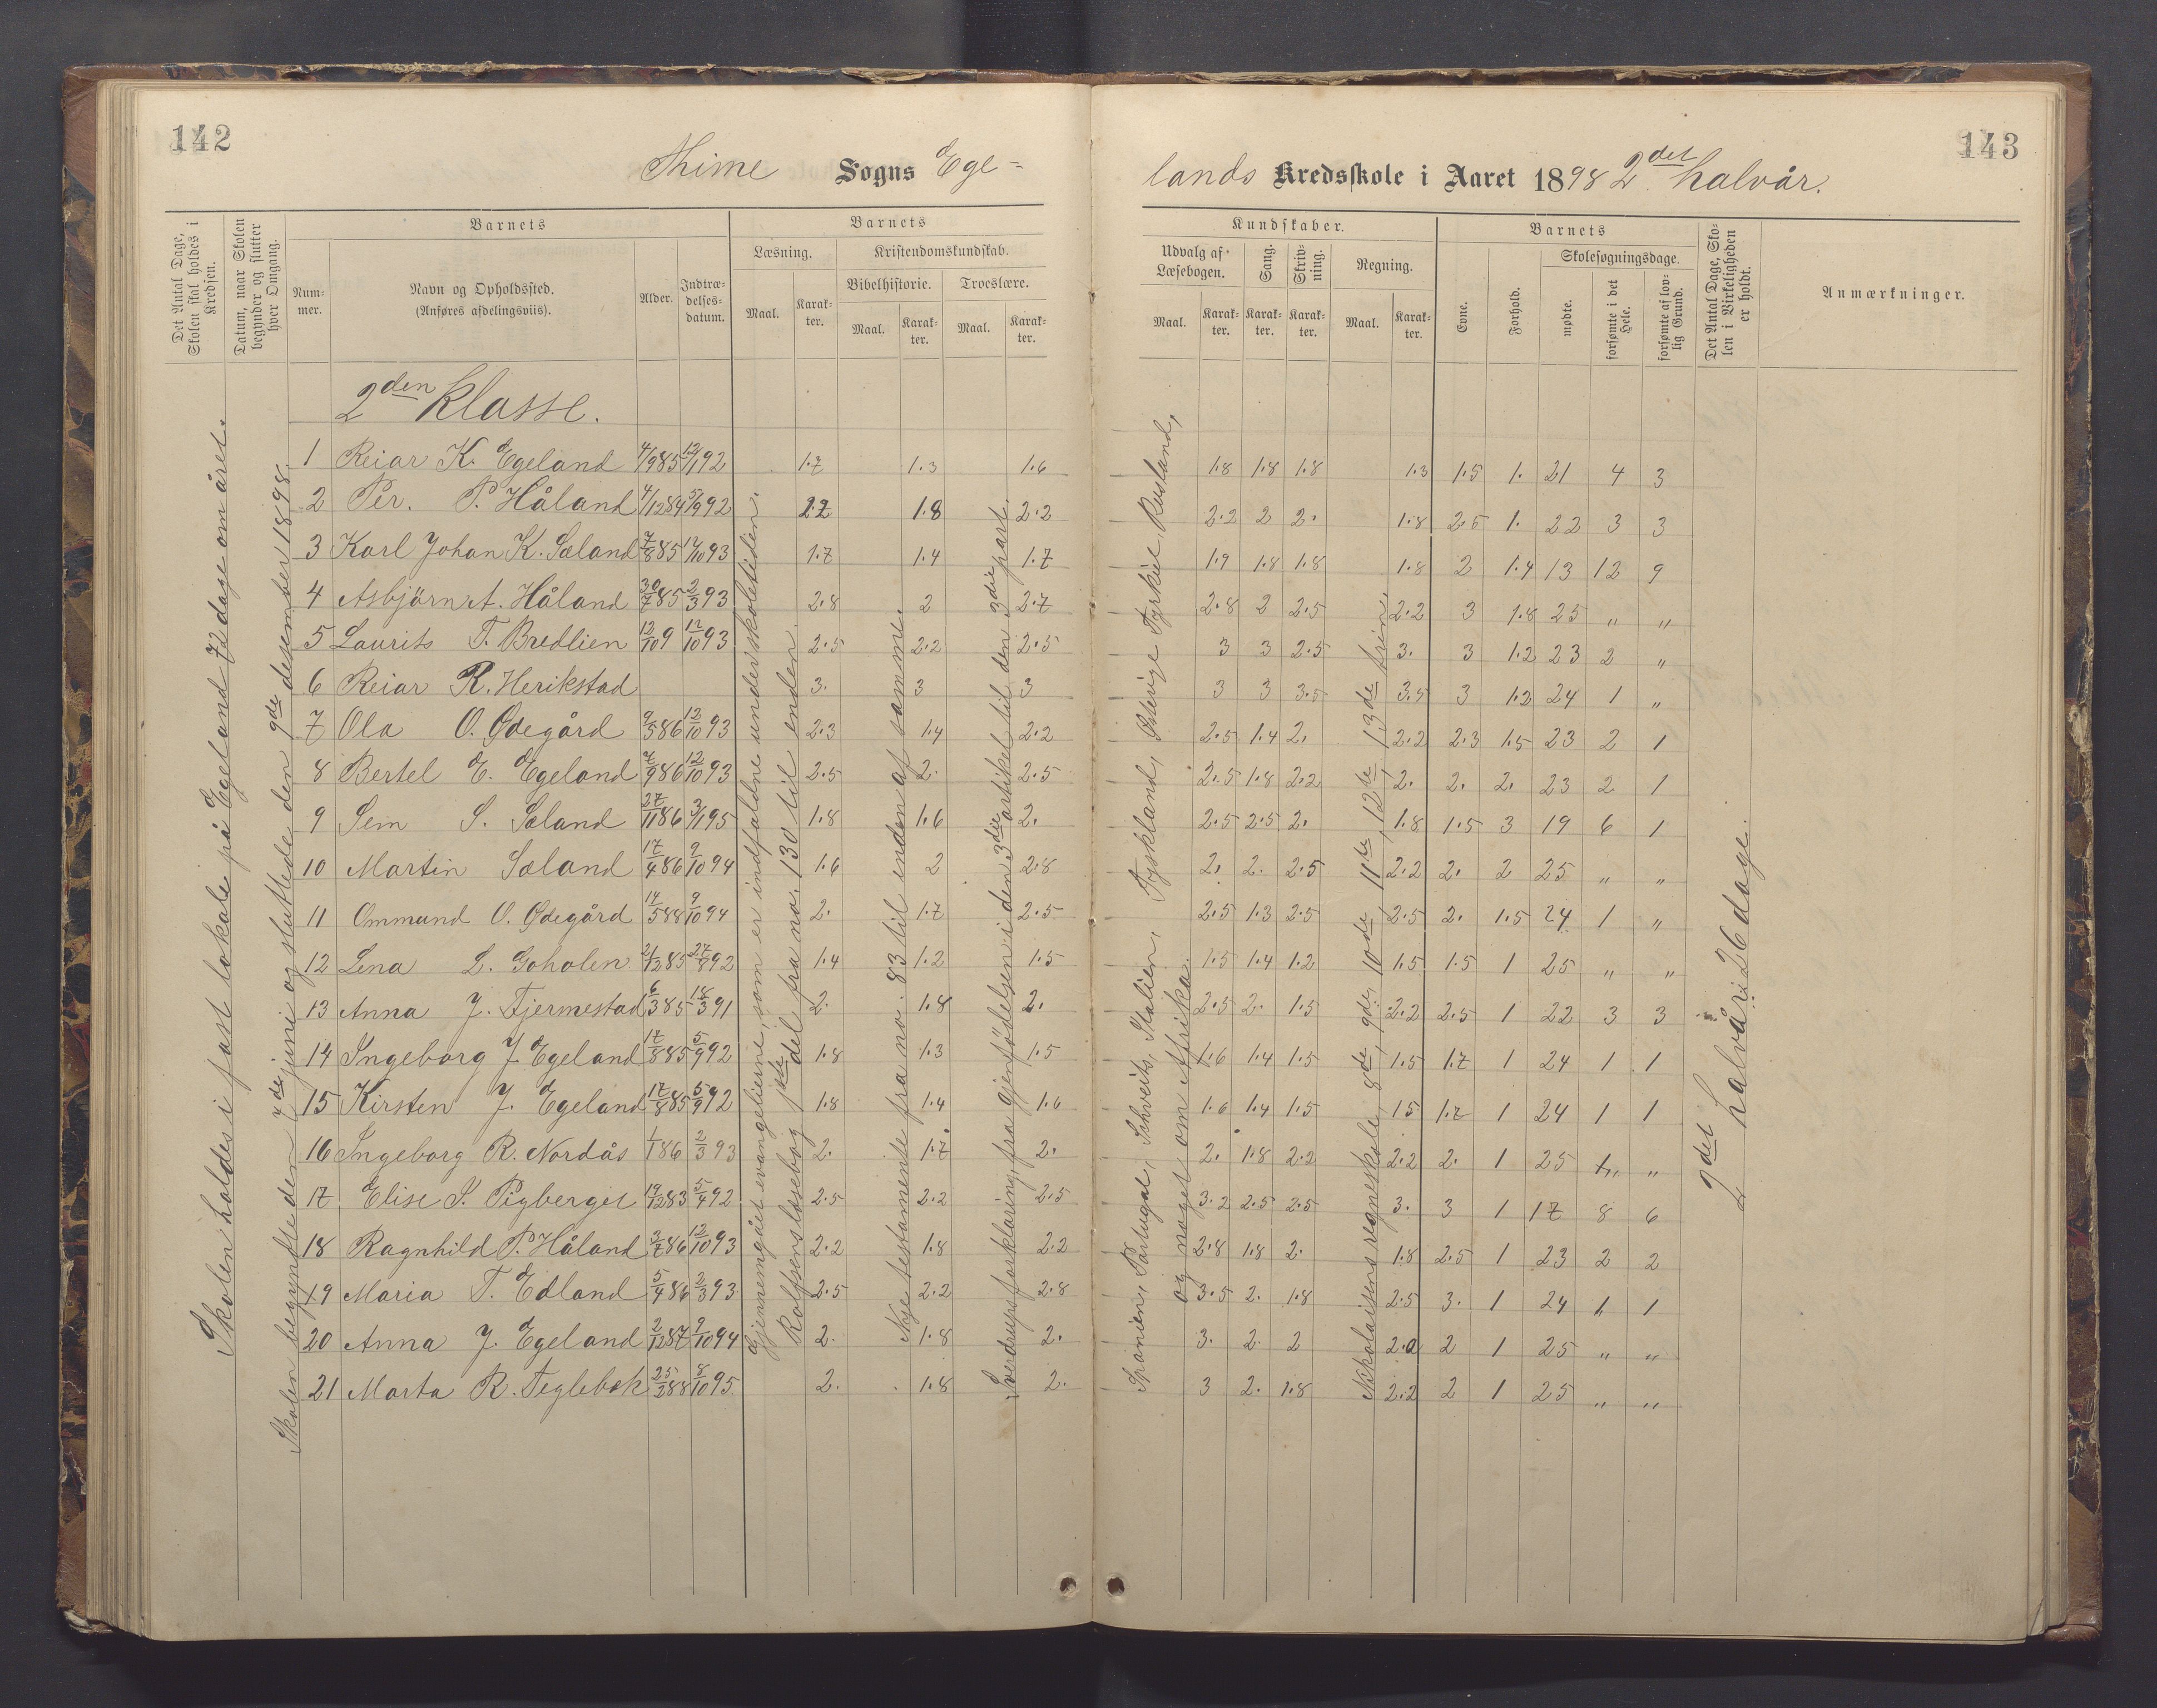 142
143
Thime Sogns Ege-
lands Kredsskole i Aaret 1898 2det halvår.
Det Antal Dage, Skolen skal holdes i Kredsen.
Datum, naar Skolen begynder og slutter hver Omgang.
Barnets
Nummer.
Navn og Opholdssted.
(Anføres afdelingsviis).
Alder.
Indtrædelsesdatum.
Barnets
Læsning.
Maal.
Karakter.
Kristendomskundskab.
Bibelhistorie.
Maal.
Karakter.
Troeslære.
Maal.
Karakter.
Kundskaber.
Udvalg af Læsebogen.
Maal.
Karakter.
Sang.
Karakter.
Skrivning.
Karakter.
Regning.
Maal.
Karakter.
Barnets
Evne.
Forhold.
Skolesøgningsdage.
mødte.
forsømte i det Hele.
forsømte af lovlig Grund.
Det Antal Dage, Skolen i Virkeligheden er holdt.
Anmærkninger.
2den klasse.
1 Reiar K. Egeland 4/9 85 12/1 92 1.7 1.3 1.6 1.8 1.8 1.8 1.3 1.5 1. 21 4 3
2 Per. P. Håland 4/12 84 5/9 92 2.2 1.8 2.2 2.2 2 2. 1.8 2.5 1. 22 3 3
3 Karl Johan K. Sæland 7/8 85 12/10 93 1.7 1.4 1.7 1.9 1.8 1.8 1.8 2 1.4 13 12 9
4 Asbjörn A. Håland 30/7 85 2/3 93 2.8 2 2.7 2.8 2 2.5 2.2 3 1.8 25 " "
5 Laurits T. Bredlien 12/10 9 12/10 93 2.5 2.2 2.5 3 3 2.5 3. 3 1.2 23 2 "
6 Reiar R. Herikstad 3. 3 3 3 3 3.5 3.5 3 1.2 24 1 "
7 Ola O. Ødegård 9/5 86 12/10 93 2.3 1.4 2.2 2.5 1.4 2. 2.2 2.3 1.5 23 2 1
8 Bertel E. Egeland 7/9 86 12/10 93 2.5 2. 2.5 2.5 1.8 2.2 2. 2. 2. 23 2 1
9 Sem S. Sæland 27/11 86 3/1 95 1.8 1.6 2. 2.5 2.5 2. 1.8 1.5 3 19 6 1
10 Martin Sæland 17/4 86 9/10 94 1.6 2 2.8 2. 2. 2.5 2.2 2. 2 25 " "
11 Ommund O. Ødegård 14/5 88 9/10 94 2. 1.7 2.5 2.5 1.3 2.5 2.5 2. 1.5 24 1 "
12 Lena L. Goholen 21/12 85 27/8 92 1.4 1.2 1.5 1.5 1.4 1.2 1.5 1.5 1 25 " "
13 Anna J. Tjermestad 6/3 85 18/3 91 2. 1.8 2. 2.5 2. 1.5 2.2 2.5 1 22 3 3
14 Ingeborg J. Egeland 17/8 85 5/9 92 1.8 1.3 1.5 1.6 1.4 1.5 1.5 1.7 1 24 1 1
15 Kirsten J. Egeland 17/8 85 5/9 92 1.8 1.4 1.6 1.6 1.4 1.5 1.5 1.7 1 24 1 1
16 Ingeborg R. Nordås 1/1 86 2/3 93 2. 1.7 2. 2. 1.8 2.2 2.2 2. 1 25 " "
17. Elise S. Pigberget 19/12 83 5/4 92 2.5 2.2 2.5 3.2 2.5 2.5 3. 3 1 17 8 6
18 Ragnhild P. Håland 3/7 86 12/10 93 2.2 1.8 2.2 2.8 1.8 2. 1.8 2.5 1 23 2 2
19 Maria T. Edland 5/4 86 2/3 93 2.5 2.2 2.8 3.5 2. 1.8 2.5 3. 1 24 1 1
20 Anna J. Egeland 2/12 87 9/10 94 2. 1.8 2. 3. 2. 2 2.0 2 1 25 " "
21 Marta R. Teglebæk 25/3 88 8/10 95 2. 1.8 2. 3 2. 1.8 2.2 2 1 25 " "
Skolen holdes i fast lokale på Egeland 72 dage om året.
Skolen begynte den 7de juni og sluttede den 9de desember 1898.
Gjennemgået evangelierne, som er indfaldne under skoletiden.
Rolfsens læsebog 1ste del fra no. 130 til enden.
Nye testamente fra no. 83 til enden af samme.
Sverdrups forklaring, fra gjenfødelsen i den 3die artikel til den 3die part.
Spanien, Portugal, Schveits, Italien, Tyskland, Østerige Tyrkiet, Rusland,
og noget om Afrika.
Nikolaisens regneskole 8de, 9de, 10de, 11te, 12te, 13de trin.
2det halvår: 26 dage.